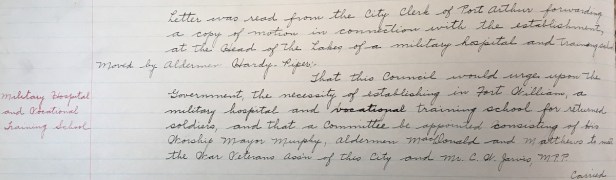 Letter was read from the City Clerk of Port Arthur forwarding
a copy of motion in connection with the establishment,
at the Head of the Lakes of a military hospital and training school
Moved by Alderman Hardy-Piper:-
That this Council would urge upon the
Military Hospital
and Vocational
Training School
Government, the necessity of establishing in Fort William, a
military hospital and vocational training school for returned
soldiers, and that a Committee be appointed consisting of His
Worship Mayor Murphy, Aldermen MacDonald and Matthews to
the War Veterans Assn of this City and Mr. C. W. Jarvis, M.P.P.
Carried